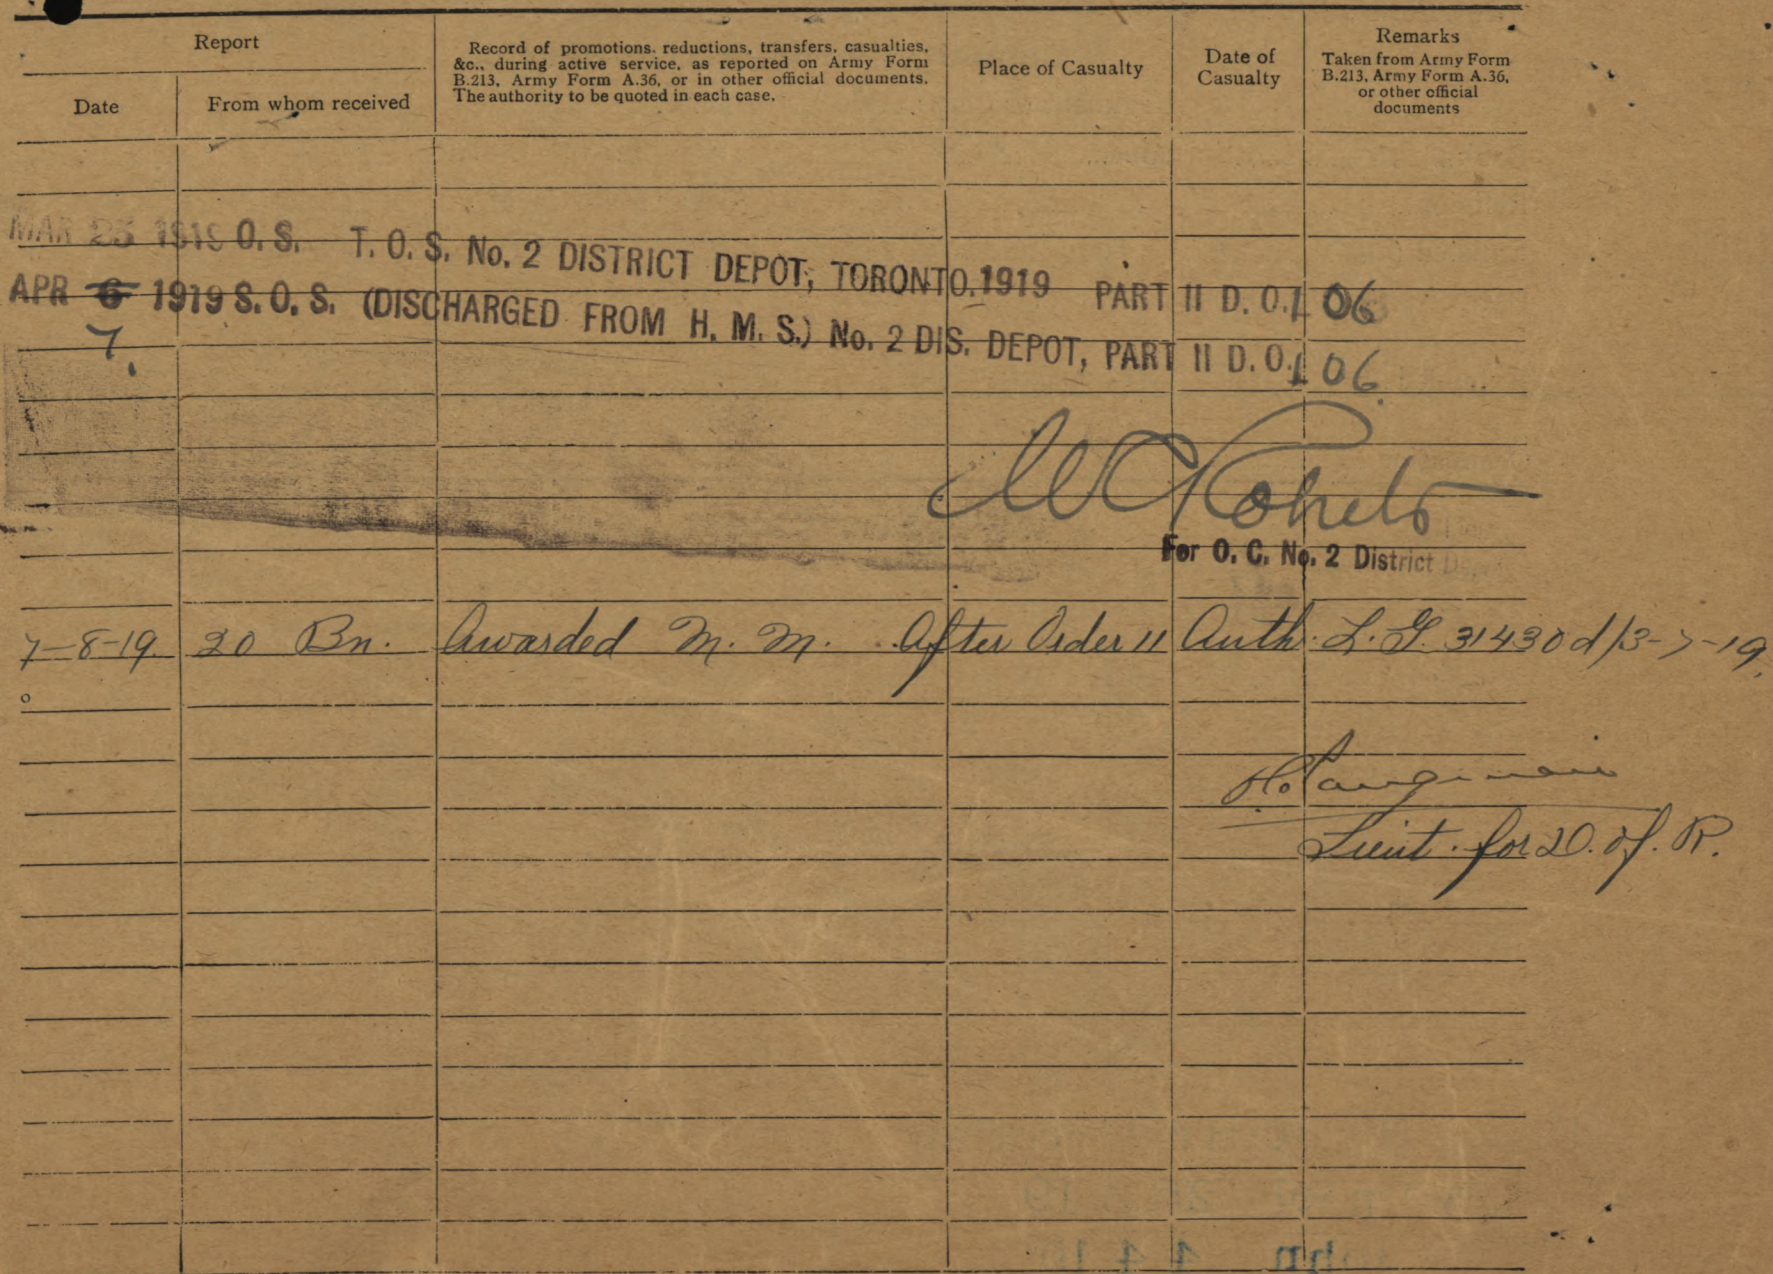 Report
Record of promotions, reductions, transfers, casualties,
&c., during active service, as reported on Army Form
B.213, Army Form A.36, or in other official documents.
The authority to be quoted in each case.
Place of Casualty
Date of
Casualty
Remarks
Taken from Army Form
B.213, Army Form A.36,
or other official
documents
Date
From whom received
MAR 25 1919 O. S. T. O. S. No. 2 DISTRICT DEPOT, TORONTO. 1919 PART II D. O. 106
APR 6 1919 S. O. S. (DISCHARGED FROM H. M. S.) No. 2 DIS. DEPOT, PART II D. O. 106.
7.
For O. C. No. 2 District
7-8-19. 20 Bn. Awarded M. M. After Order 11 Auth. L. G. 31430 d/3-7-19.
Lieut. for D. of. R.